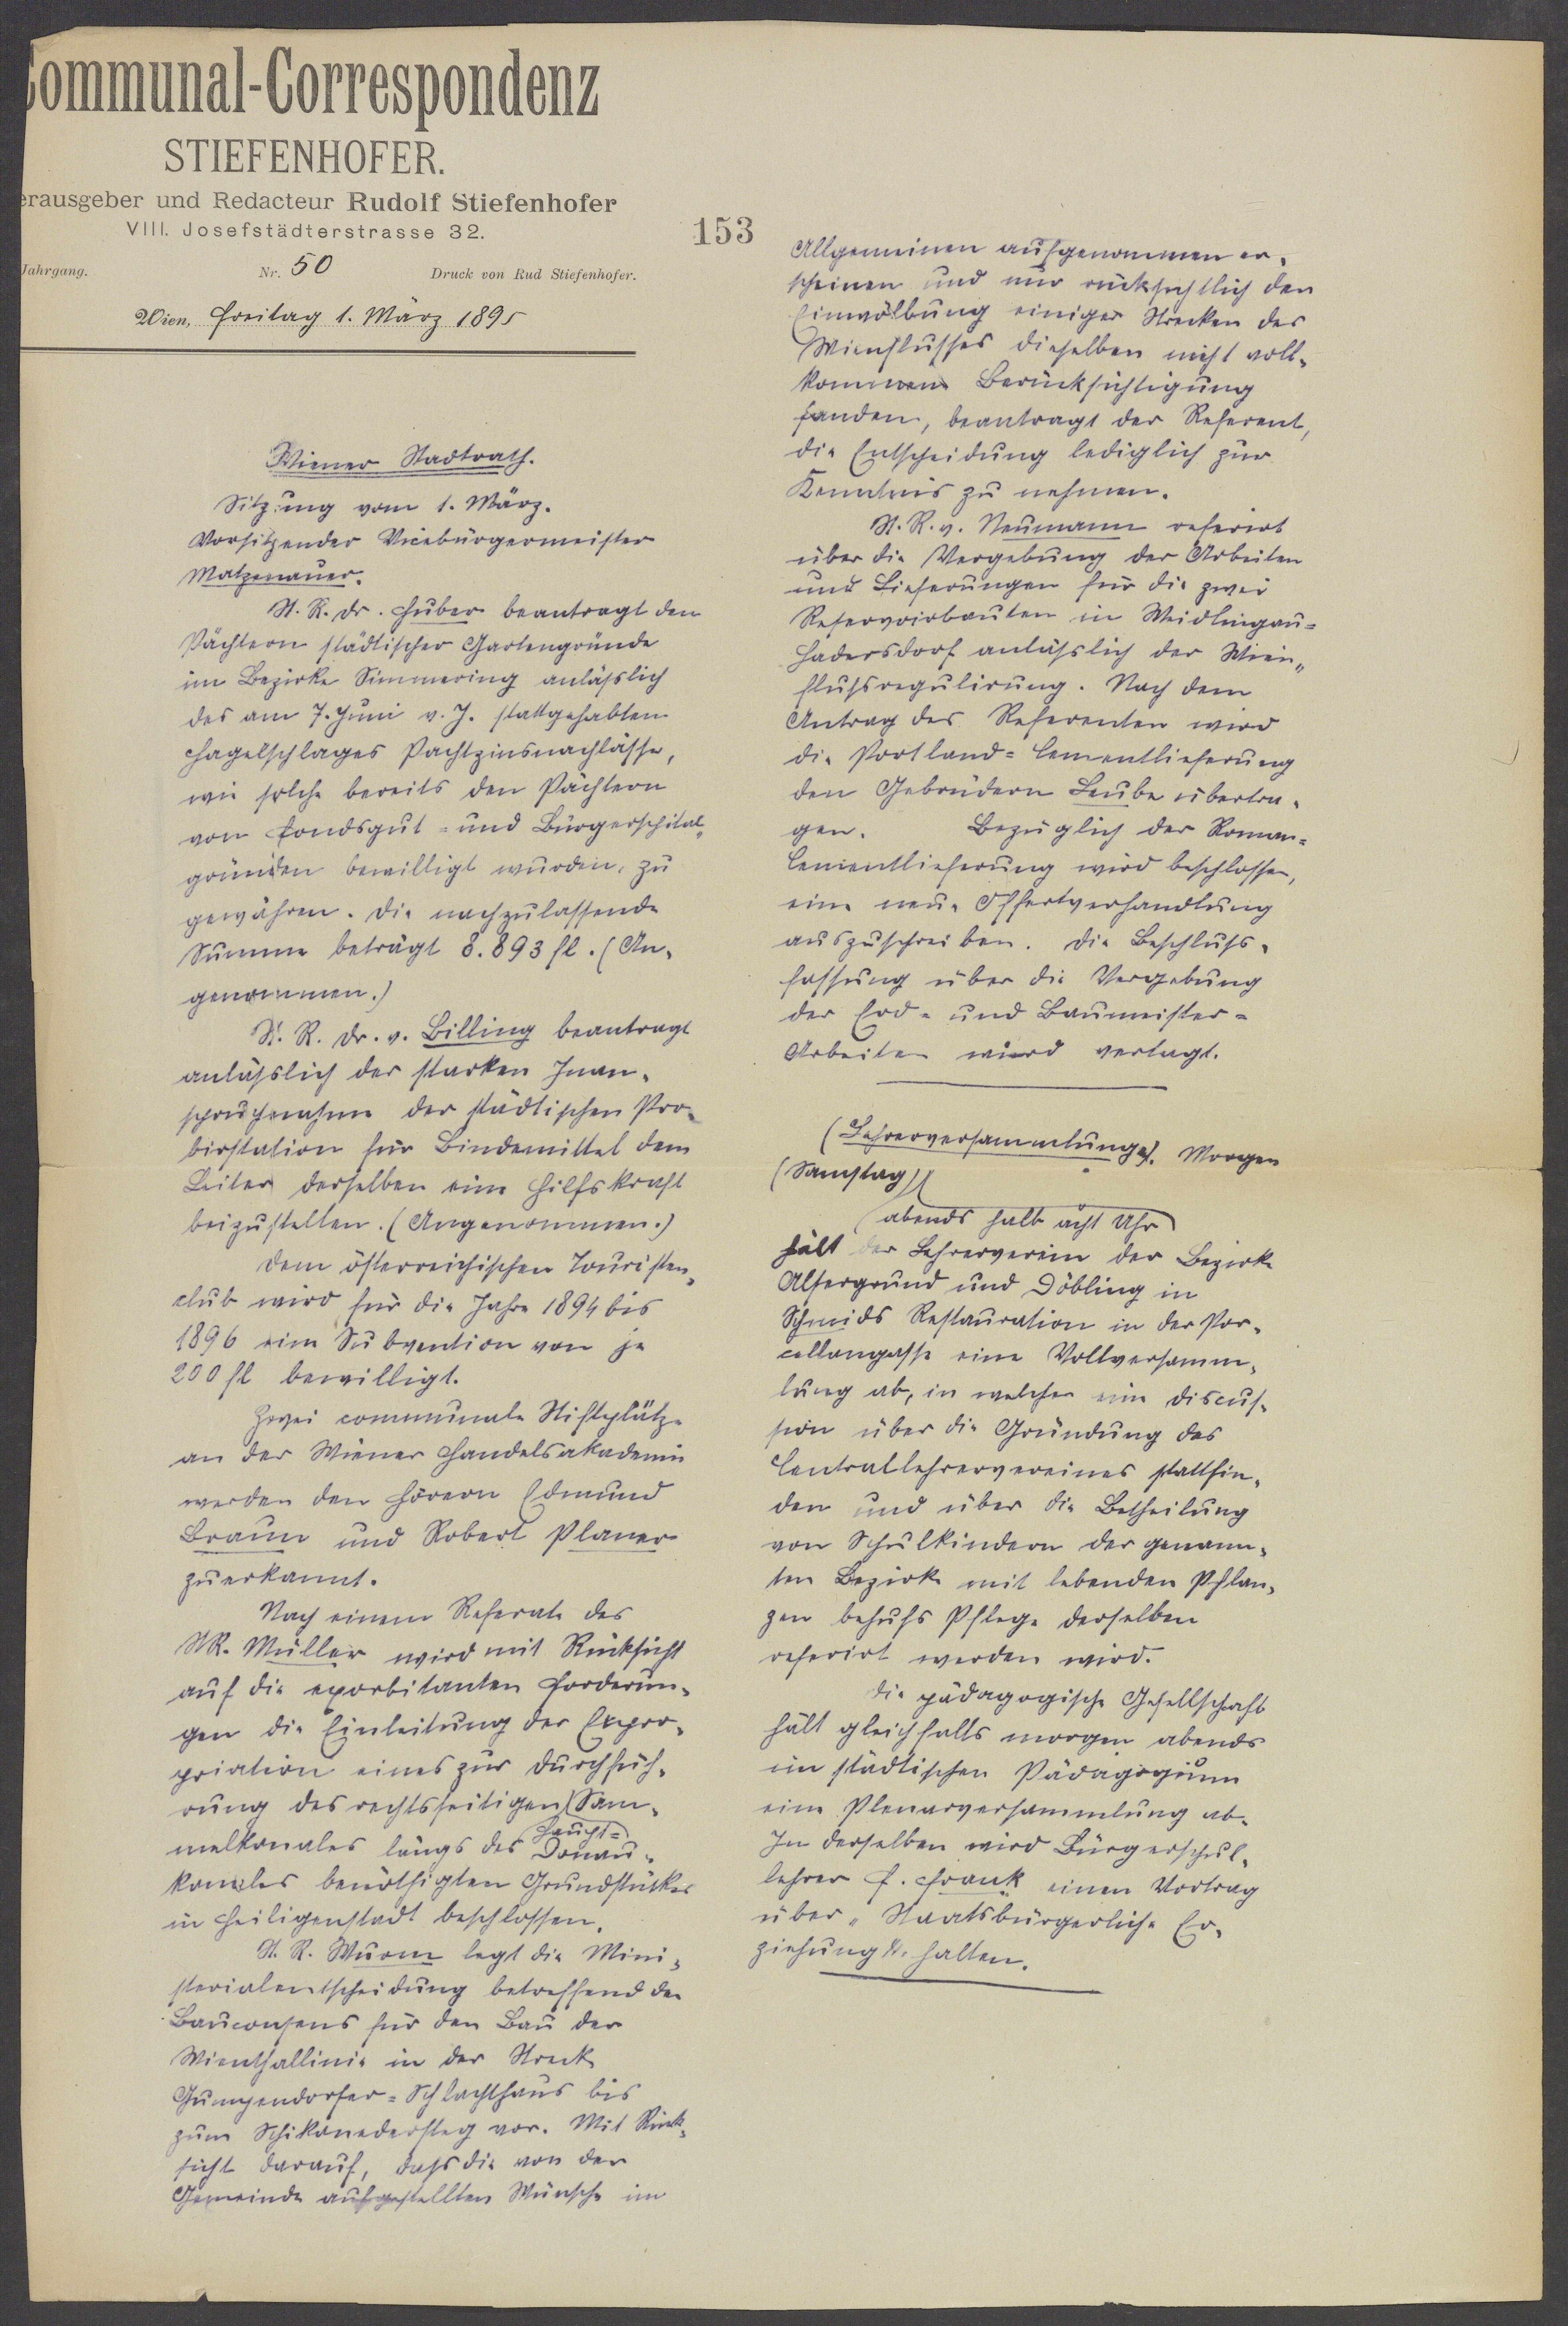 Communal-Correspondenz
STIEFENHOFER.
erausgeber und Redacteur Rudolf Stiefenhofer
VIII. Josefstädterstrasse 32.
Jahrgang. Nr. 50 Druck von Rud Stiefenhofer.
Wien, Freitag 1. März 1895
153
Wiener Stadtrath.
Sitzung vom 1. März.
Vorsitzender Vicebürgermeister
Matzenauer.
St. R. Dr. Huber beantragt den
Pächtern städtischer Gartengründe
im Bezirke Simmering anläßlich
des am 7. Juni v. J. stattgehabten
Hagelschlages Pachtzinsnachlässe,
wie solche bereits den Pächtern
von Fondsgut- und Bürgerspital-
gründen bewilligt wurden, zu
gewähren. Die nachzulassende
Summe beträgt 8.893 fl. (An-
genommen.)
St. R. Dr. v. Billing beantragt
anläßlich der starken Inan-
spruchnahme der städtischen Pro-
birstation für Bindemittel dem
Leiter derselben eine Hilfskraft
beizustellen. (Angenommen.)
Dem österreichischen Touristen-
club wird für die Jahre 1894 bis
1896 eine Subvention von je
200 fl bewilligt.
Zwei communale Stiftplätze
an der Wiener Handelsakademie
werden den Hörern Edmund
Braun und Robert Planer
zuerkannt.
Nach einem Referate des
StR. Müller wird mit Rücksicht
auf die exorbitanten Forderun-
gen die Einleitung der Expro-
priation eines zur Durchfüh-
rung des rechtsseitigen Sam-
Haupt-
melkanales längs des Donau-
kanales benöthigten Grundstückes
in Heiligenstadt beschlossen.
St. R. Wurm legt die Mini-
sterialentscheidung betreffend den
Bauconsens für den Bau der
Wienthallinie in der Strecke
Gumpendorfer-Schlachthaus bis
zum Schikanedersteg vor. Mit Rück-
sicht darauf, daß die von der
Gemeinde aufgestellten Wünsche im
Allgemeinen aufgenommen er-
scheinen und nur rücksichtlich der
Einwölbung einiger Strecken des
Wienflusses dieselben nicht voll-
kommen Berücksichtigung
fanden, beantragt der Referent,
die Entscheidung lediglich zur
Kenntnis zu nehmen.
St. R. v. Neumann referirt
über die Vergebung der Arbeiten
und Lieferungen für die zwei
Reservoirbauten in Weidlingau-
Hadersdorf anläßlich der Wien-
flußregulirung. Nach dem
Antrag des Referenten wird
die Portland-Cementlieferung
den Gebrüdern Leube übertra-
gen. Bezüglich der Roman-
Cementlieferung wird beschlossen,
eine neue Offertverhandlung
auszuschreiben. Die Beschluß-
fassung über die Vergebung
der Erd- und Baumeister-
Arbeiten wird vertagt.
(Lehrerversammlung). Morgen
(Samstag)
abends halb acht Uhr
hält der Lehrerverein der Bezirke
Alsergrund und Döbling in
Schmids Restauration in der Por-
cellangasse eine Vollversamm-
lung ab, in welcher eine Discus-
sion über die Gründung des
Centrallehrervereines stattfin-
den und über die Betheilung
von Schulkindern der genann-
ten Bezirke mit lebenden Pflan-
zen behufs Pflege derselben
referirt werden wird.
Die pädagogische Gesellschaft
hält gleichfalls morgen abends
im städtischen Pädagogium
eine Plenarversammlung ab.
In derselben wird Bürgerschul-
lehrer F. Frank einen Vortrag
über "Staatsbürgerliche Er-
ziehung" halten.